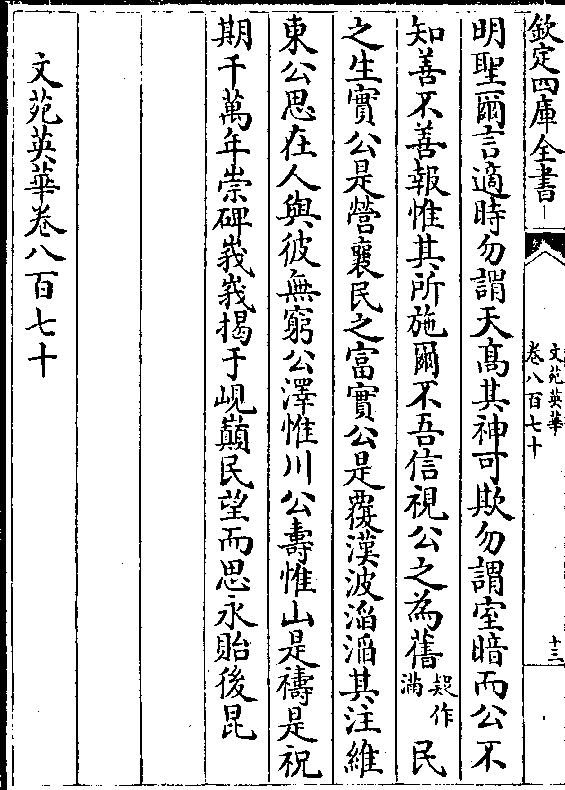 欽定四庫全書
文苑英華
卷八百七十
十三
明聖爾言適時勿謂天髙其神可欺勿謂室暗而公不
知善不善報惟其所施爾不吾信視公之為舊疑作滿民
之生實公是營襄民之富實公是覆漢波滔滔其注維
東公思在人與彼無窮公澤惟川公壽惟山是禱是祝
期千萬年崇碑峩峩揭于峴巔民望而思永貽後昆
文苑英華卷八百七十